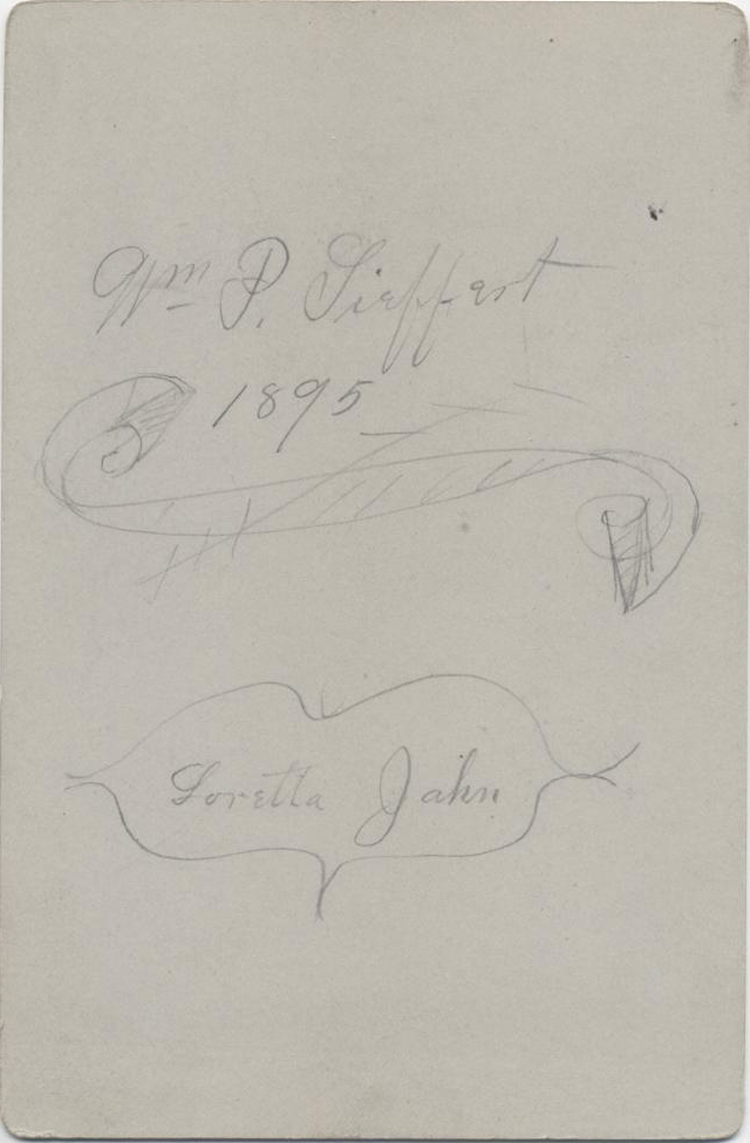 Wm P. Sieffert
1895
Loretta Jahn